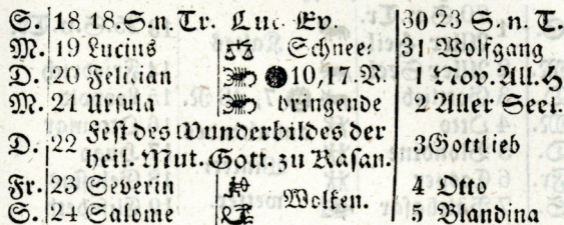 S. 18 18. S. n. Tr. Luc. Ev. 30 23 S. n. T.
M. 19 Lucius Schnee: 31 Wolfgang
D. 20 Felician 10,17. V. 1 Nov. All. H
M. 21 Ursula bringende 2 Aller Seel.
D. 22 Fest des Wunderbildes der heil. Mut. Gott. zu Kasan. 3 Gottlieb
Fr. 23 Severin Wolken. 4 Otto
S. 24 Salome 5 Blandina